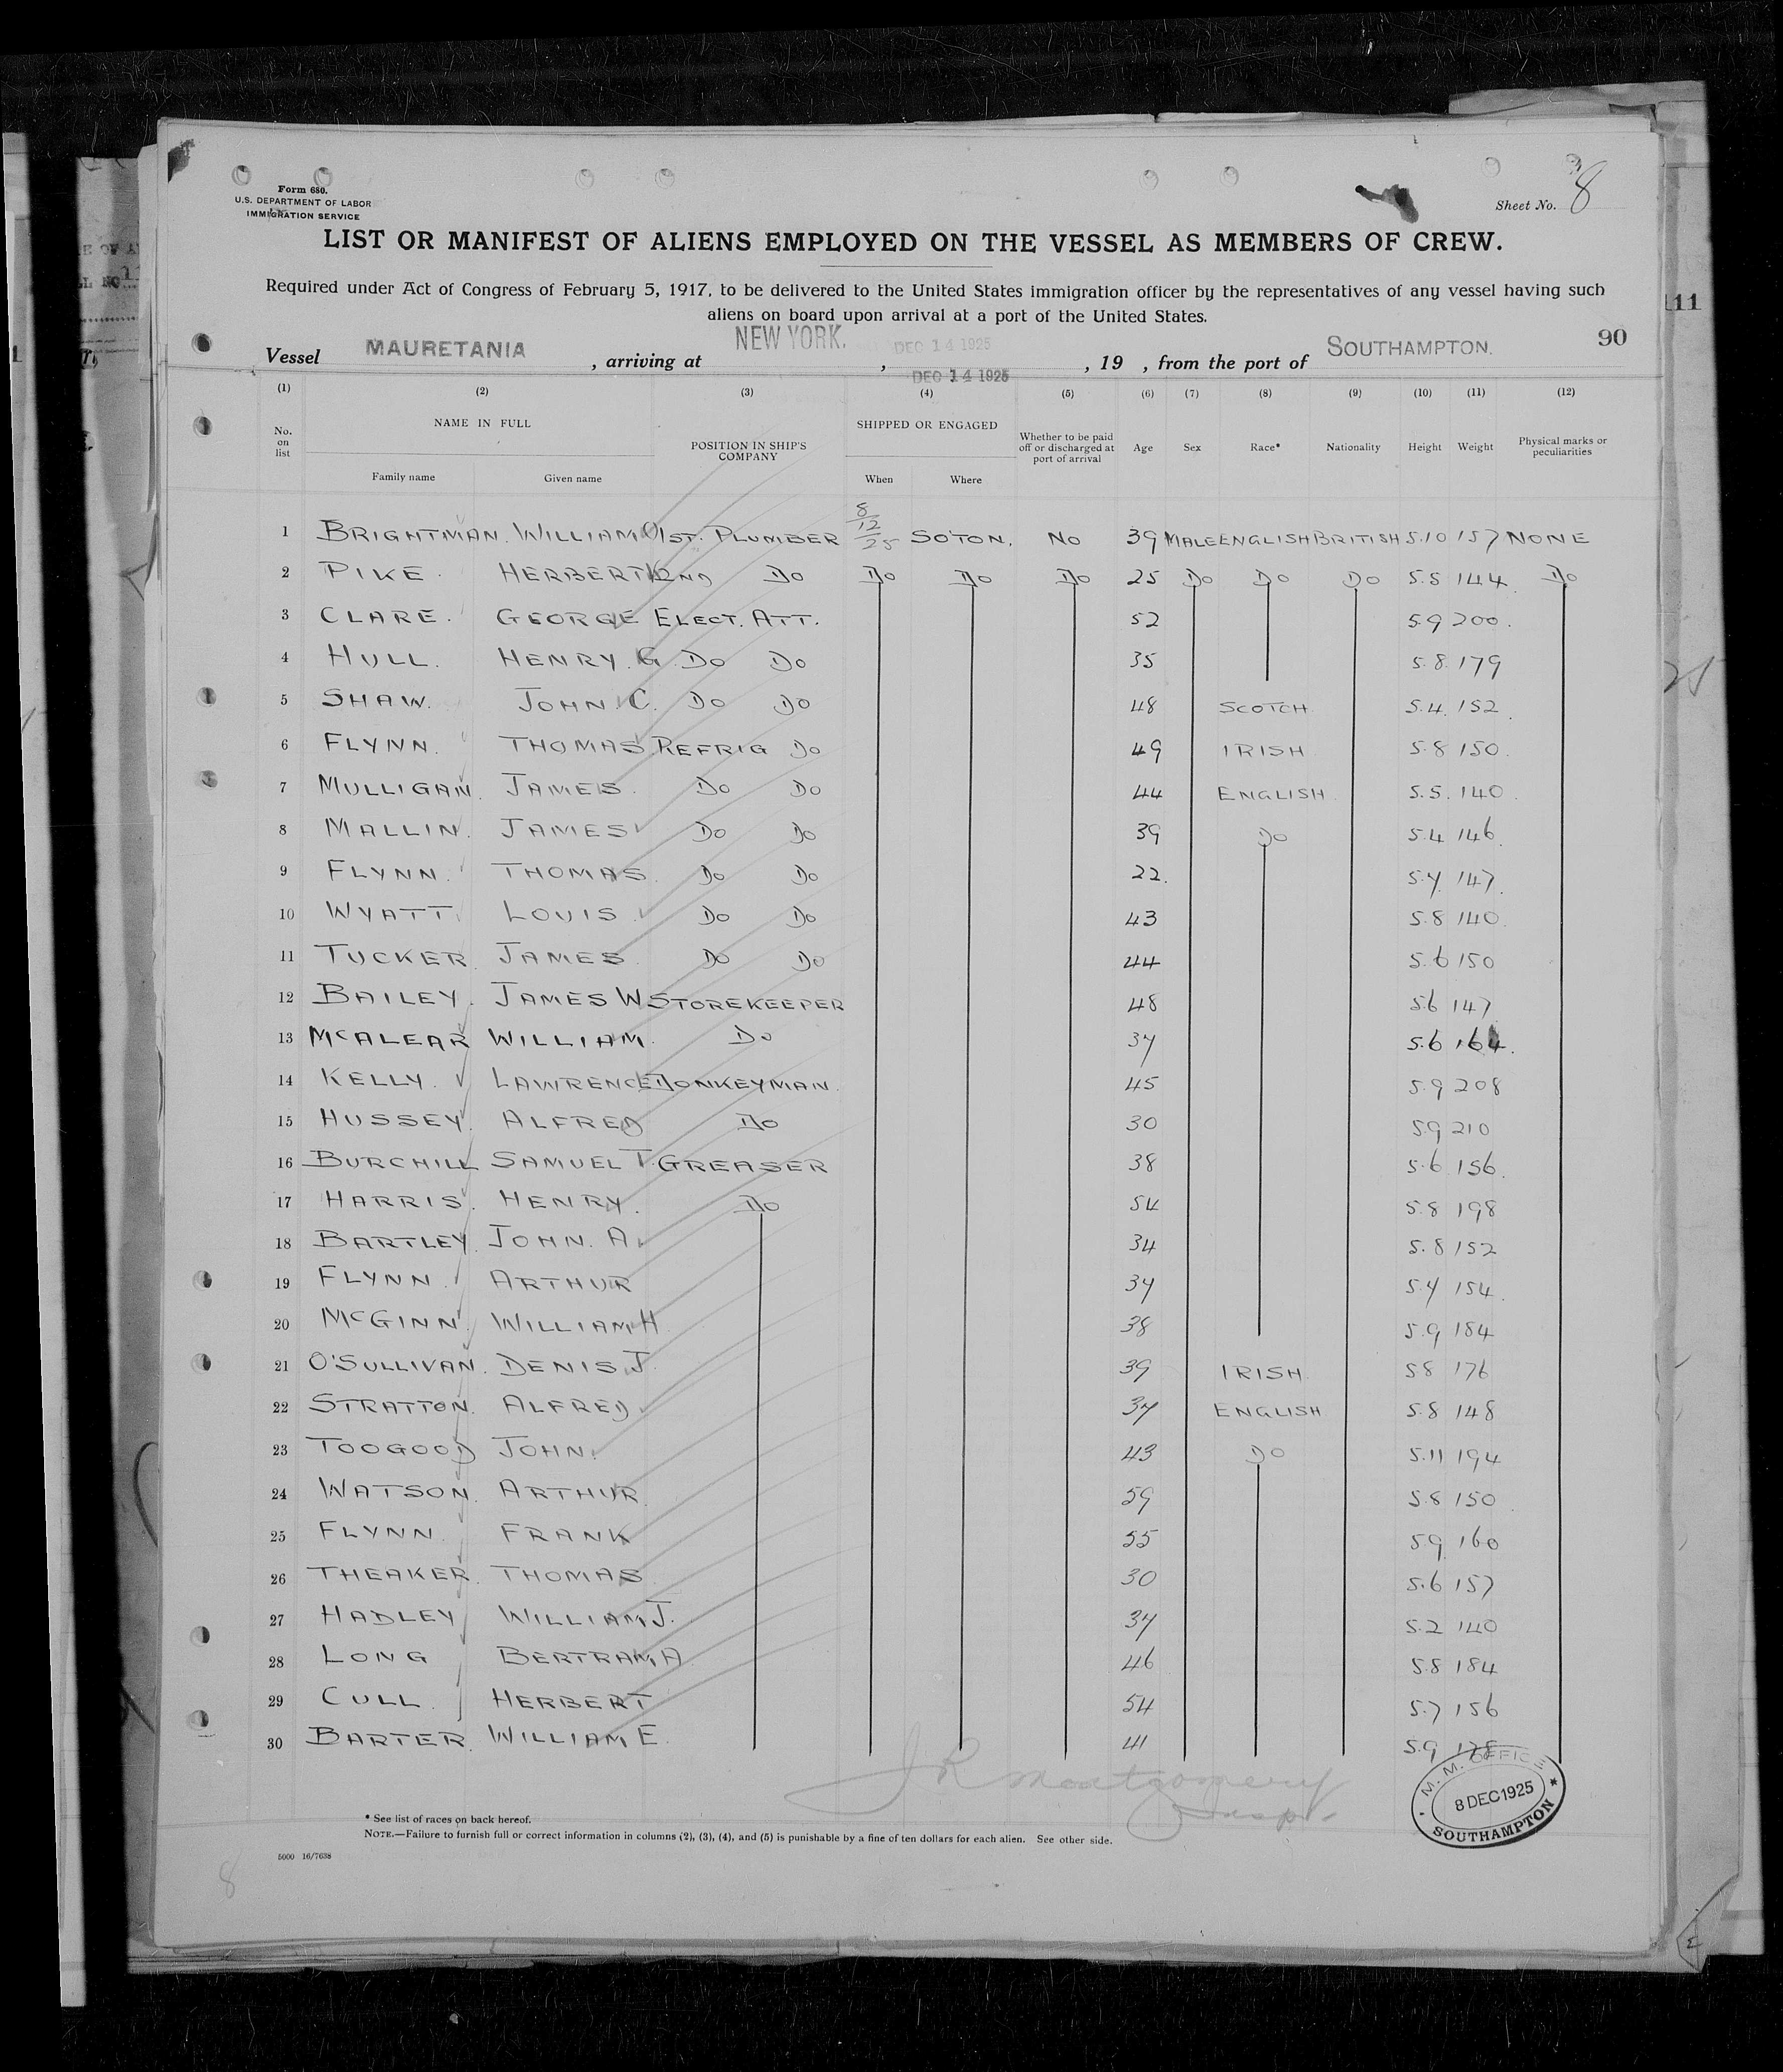 Form 680.
U.S. DEPARTMENT OF LABOR
IMMIGRATION SERVICE
Sheet No. 8
LIST OR MANIFEST OF ALIENS EMPLOYED ON THE VESSEL AS MEMBERS OF CREW.
Required under Act of Congress of February 5, 1917, to be delivered to the United States immigration officer by the representatives of any vessel having such
aliens on board upon arrival at a port of the United States.
90
Vessel MAURETANIA, arriving at NEW YORK. DEC 14 1925, 19 , from the port of SOUTHAMPTON.
DEC 14 1925
(1) (2) (3) (4) (5) (6) (7) (8) (9) (10) (11) (12)
No. on list NAME IN FULL Family name Given name POSITION IN SHIP'S COMPANY SHIPPED OR ENGAGED When Where Whether to be paid off or discharged at port of arrival Age Sex Race* Nationality Height Weight Physical marks or peculiarities
1 BRIGHTMAN. WILLIAM O 1ST. PLUMBER 8/12/25 SO'TON. NO 39 MALE ENGLISH BRITISH 5.10 157 NONE
2 PIKE. HERBERT 2ND DO DO DO DO 25 DO DO DO 5.5 144 DO
3 CLARE. GEORGE ELECT. ATT. 52 5.9 200.
4 HULL. HENRY. G. DO DO 35 5.8. 179
5 SHAW. JOHN. C. DO DO 48 SCOTCH 5.4. 152
6 FLYNN. THOMAS REFRIG DO 49 IRISH 5.8 150.
7 MULLIGAN. JAMES. DO DO 44 ENGLISH 5.5. 140.
8 MALLIN. JAMES DO DO 39 DO 5.4 146.
9 FLYNN. THOMAS. DO DO 22. 5.7. 147.
10 WYATT LOUIS. DO DO 43 5.8 140.
11 TUCKER JAMES DO DO 44 5.6 150
12 BAILEY. JAMES W STOREKEEPER 48 5.6 147
13 MCALEAR WILLIAM. DO 37 5.6 164.
14 KELLY. LAWRENCE DONKEYMAN. 45 5.9 208
15 HUSSEY. ALFRED DO 30 5.9 210
16 BURCHILL SAMUEL T. GREASER 38 5.6 156.
17 HARRIS. HENRY. DO 54 5.8 198
18 BARTLEY. JOHN. A. 34 5.8 152
19 FLYNN. ARTHUR 37 5.7 154.
20 MCGINN WILLIAM H 38 5.9 184
21 O'SULLIVAN. DENIS J. 39 IRISH 5.8 176
22 STRATTON. ALFRED 37 ENGLISH 5.8 148
23 TOOGOOD JOHN. 43 DO 5.11 194
24 WATSON. ARTHUR. 59 5.8 150
25 FLYNN FRANK 55 5.9 160
26 THEAKER. THOMAS 30 5.6 157
27 HADLEY WILLIAM J. 37 5.2 140
28 LONG BERTRAM A 46 5.8 184
29 CULL. HERBERT 54 5.7 156
30 BARTER. WILLIAM E. 41 5.9 178
J R Montgomery
Insp.
M. M. OFFICE
8 DEC 1925
SOUTHAMPTON
* See list of races on back hereof.
NOTE.—Failure to furnish full or correct information in columns (2), (3), (4), and (5) is punishable by a fine of ten dollars for each alien. See other side.
5000 16/7638
8